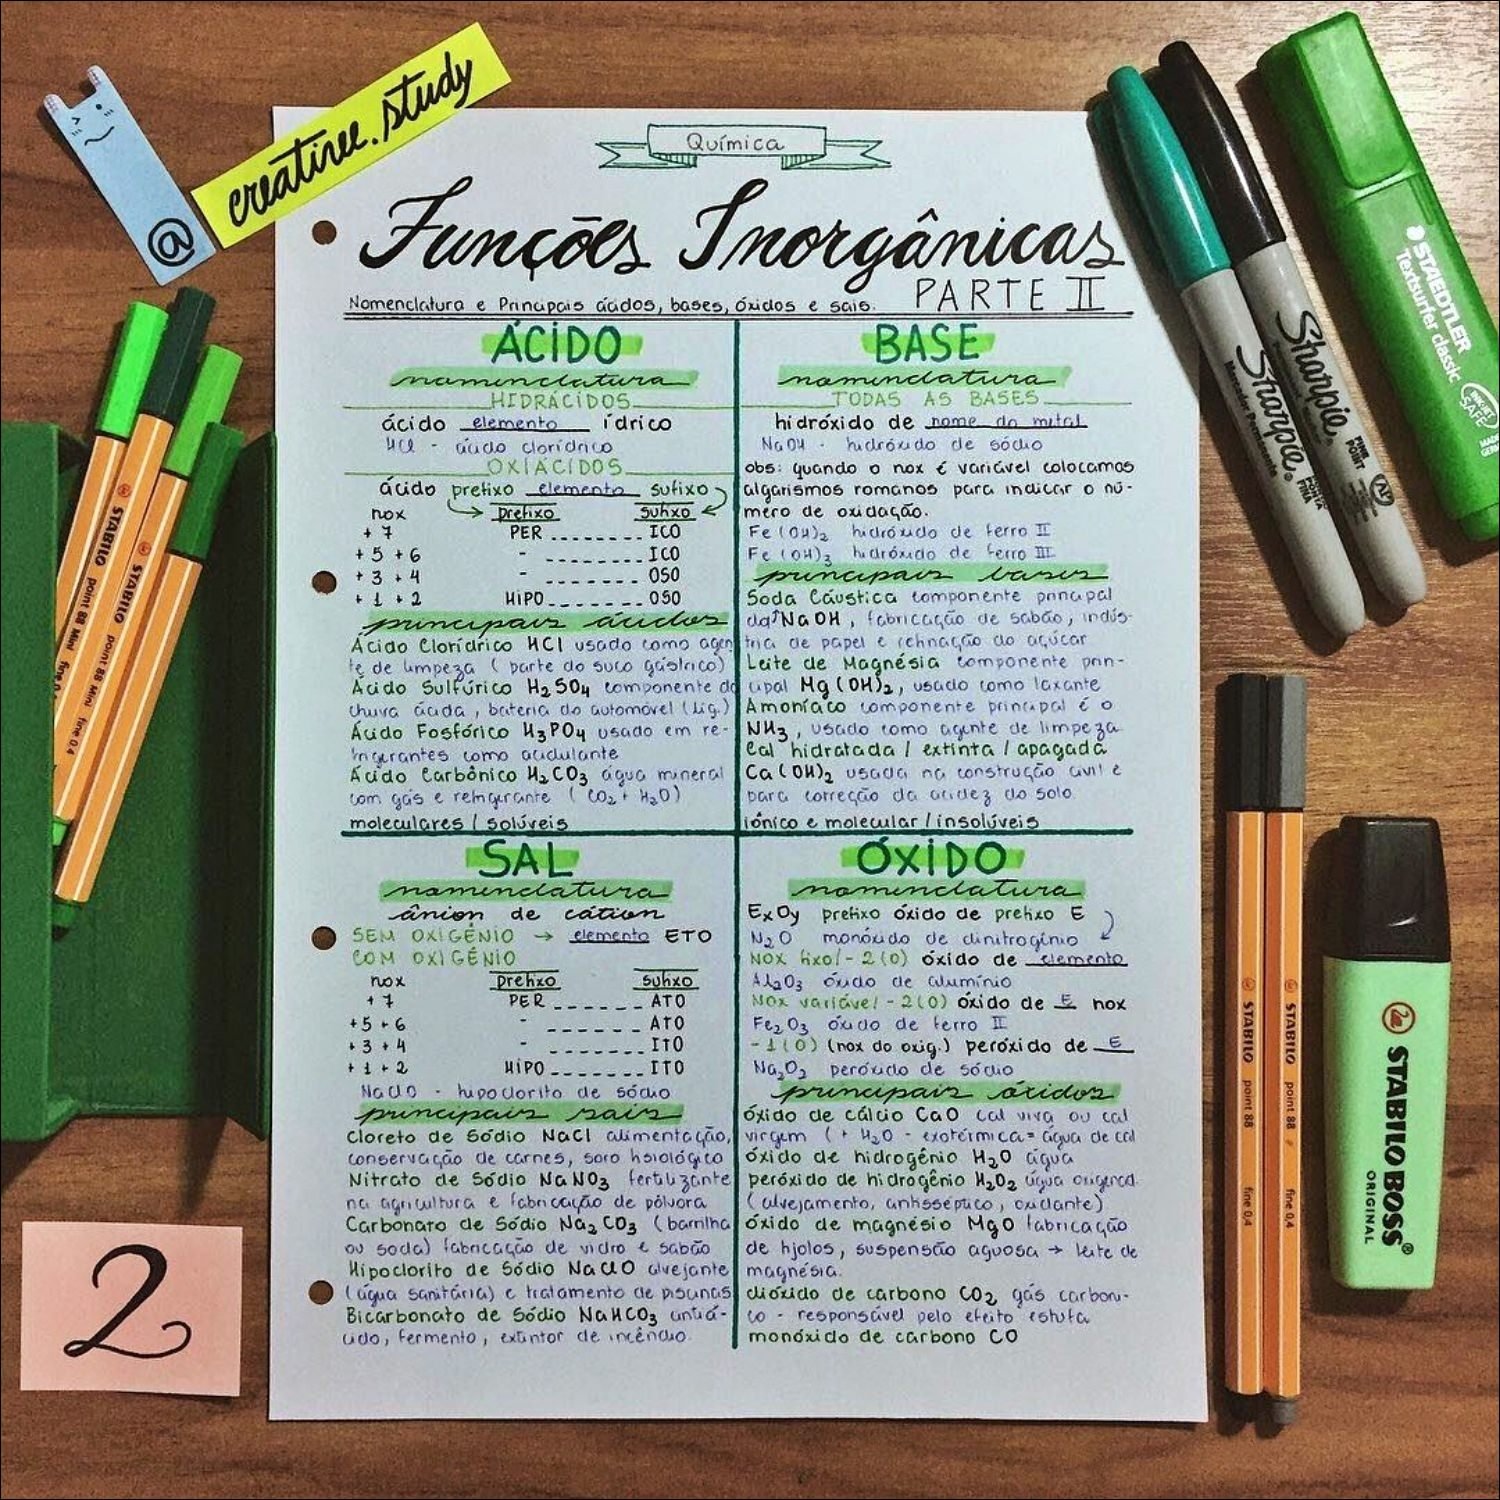 @creativee.study
Química
Funções Inorgânicas
PARTE II
Nomenclatura e Principais ácidos, bases, óxidos e sais.
ÁCIDO
nomenclatura
HIDRÁCIDOS
ácido elemento ídrico
HCl - ácido clorídrico
OXIÁCIDOS
ácido prefixo elemento sufixo
nox prefixo sufixo
+7 PER ICO
+5 +6 - ICO
+3 +4 - OSO
+1 +2 HIPO OSO
principais ácidos
Ácido Clorídrico HCl usado como agen
te de limpeza (parte do suco gástrico)
Ácido Sulfúrico H2SO4 componente da
chuva ácida, bateria do automóvel (Liq.)
Ácido Fosfórico H3PO4 usado em re-
frigerantes como acidulante
Ácido Carbônico H2CO3 água mineral
com gás e refrigerante (CO2 + H2O)
moleculares / solúveis
BASE
nomenclatura
TODAS AS BASES
hidróxido de nome do metal
NaOH - hidróxido de sódio
obs: quando o nox é variável colocamos
algarismos romanos para indicar o nú-
mero de oxidação.
Fe(OH)2 hidróxido de ferro II
Fe(OH)3 hidróxido de ferro III
principais bases
Soda Cáustica componente principal
da NaOH, fabricação de sabão, indús-
tria de papel e refinação do açúcar
Leite de Magnésia componente prin-
cipal Mg(OH)2, usado como laxante
Amoníaco componente principal é o
NH3, usado como agente de limpeza
Cal hidratada / extinta / apagada
Ca(OH)2 usada na construção civil e
para correção da acidez do solo.
iônico e molecular / insolúveis
SAL
nomenclatura
ânion de cátion
SEM OXIGÊNIO → elemento ETO
COM OXIGÊNIO
nox prefixo sufixo
+7 PER ATO
+5 +6 - ATO
+3 +4 - ITO
+1 +2 HIPO ITO
NaClO - hipoclorito de sódio
principais sais
Cloreto de Sódio NaCl alimentação,
conservação de carnes, soro fisiológico
Nitrato de Sódio NaNO3 fertilizante
na agricultura e fabricação de pólvora
Carbonato de Sódio Na2CO3 (barrilha
ou soda) fabricação de vidro e sabão
Hipoclorito de Sódio NaClO alvejante
(água sanitária) e tratamento de piscinas
Bicarbonato de Sódio NaHCO3 antiá-
cido, fermento, extintor de incêndio.
ÓXIDO
nomenclatura
ExOy prefixo óxido de prefixo E
N2O monóxido de dinitrogênio
Nox fixo/-2(O) óxido de elemento
Al2O3 óxido de alumínio
Nox variável -2(O) óxido de E nox
Fe2O3 óxido de ferro II
-1(O) (nox do oxig.) peróxido de E
Na2O2 peróxido de sódio
principais óxidos
óxido de cálcio CaO cal viva ou cal
virgem (+ H2O - exotérmica = água de cal
óxido de hidrogênio H2O água
peróxido de hidrogênio H2O2 água oxigenad.
(alvejamento, antisséptico, oxidante)
óxido de magnésio MgO fabricação
de hjolos, suspensão aquosa → leite de
magnésia.
dióxido de carbono CO2 gás carboni-
co - responsável pelo efeito estufa
monóxido de carbono CO
2
STABILO point 88 Mini fine 0.4
STABILO point 88 Mini fine 0.4
Sharpie FINE POINT
Sharpie
Marcador Permanente
PUNTA FINA
STAEDTLER
Textsurfer classic
INK JET SAFE
STABILO point 88 fine 0,4
STABILO point 88 fine 0,4
STABILO BOSS®
ORIGINAL